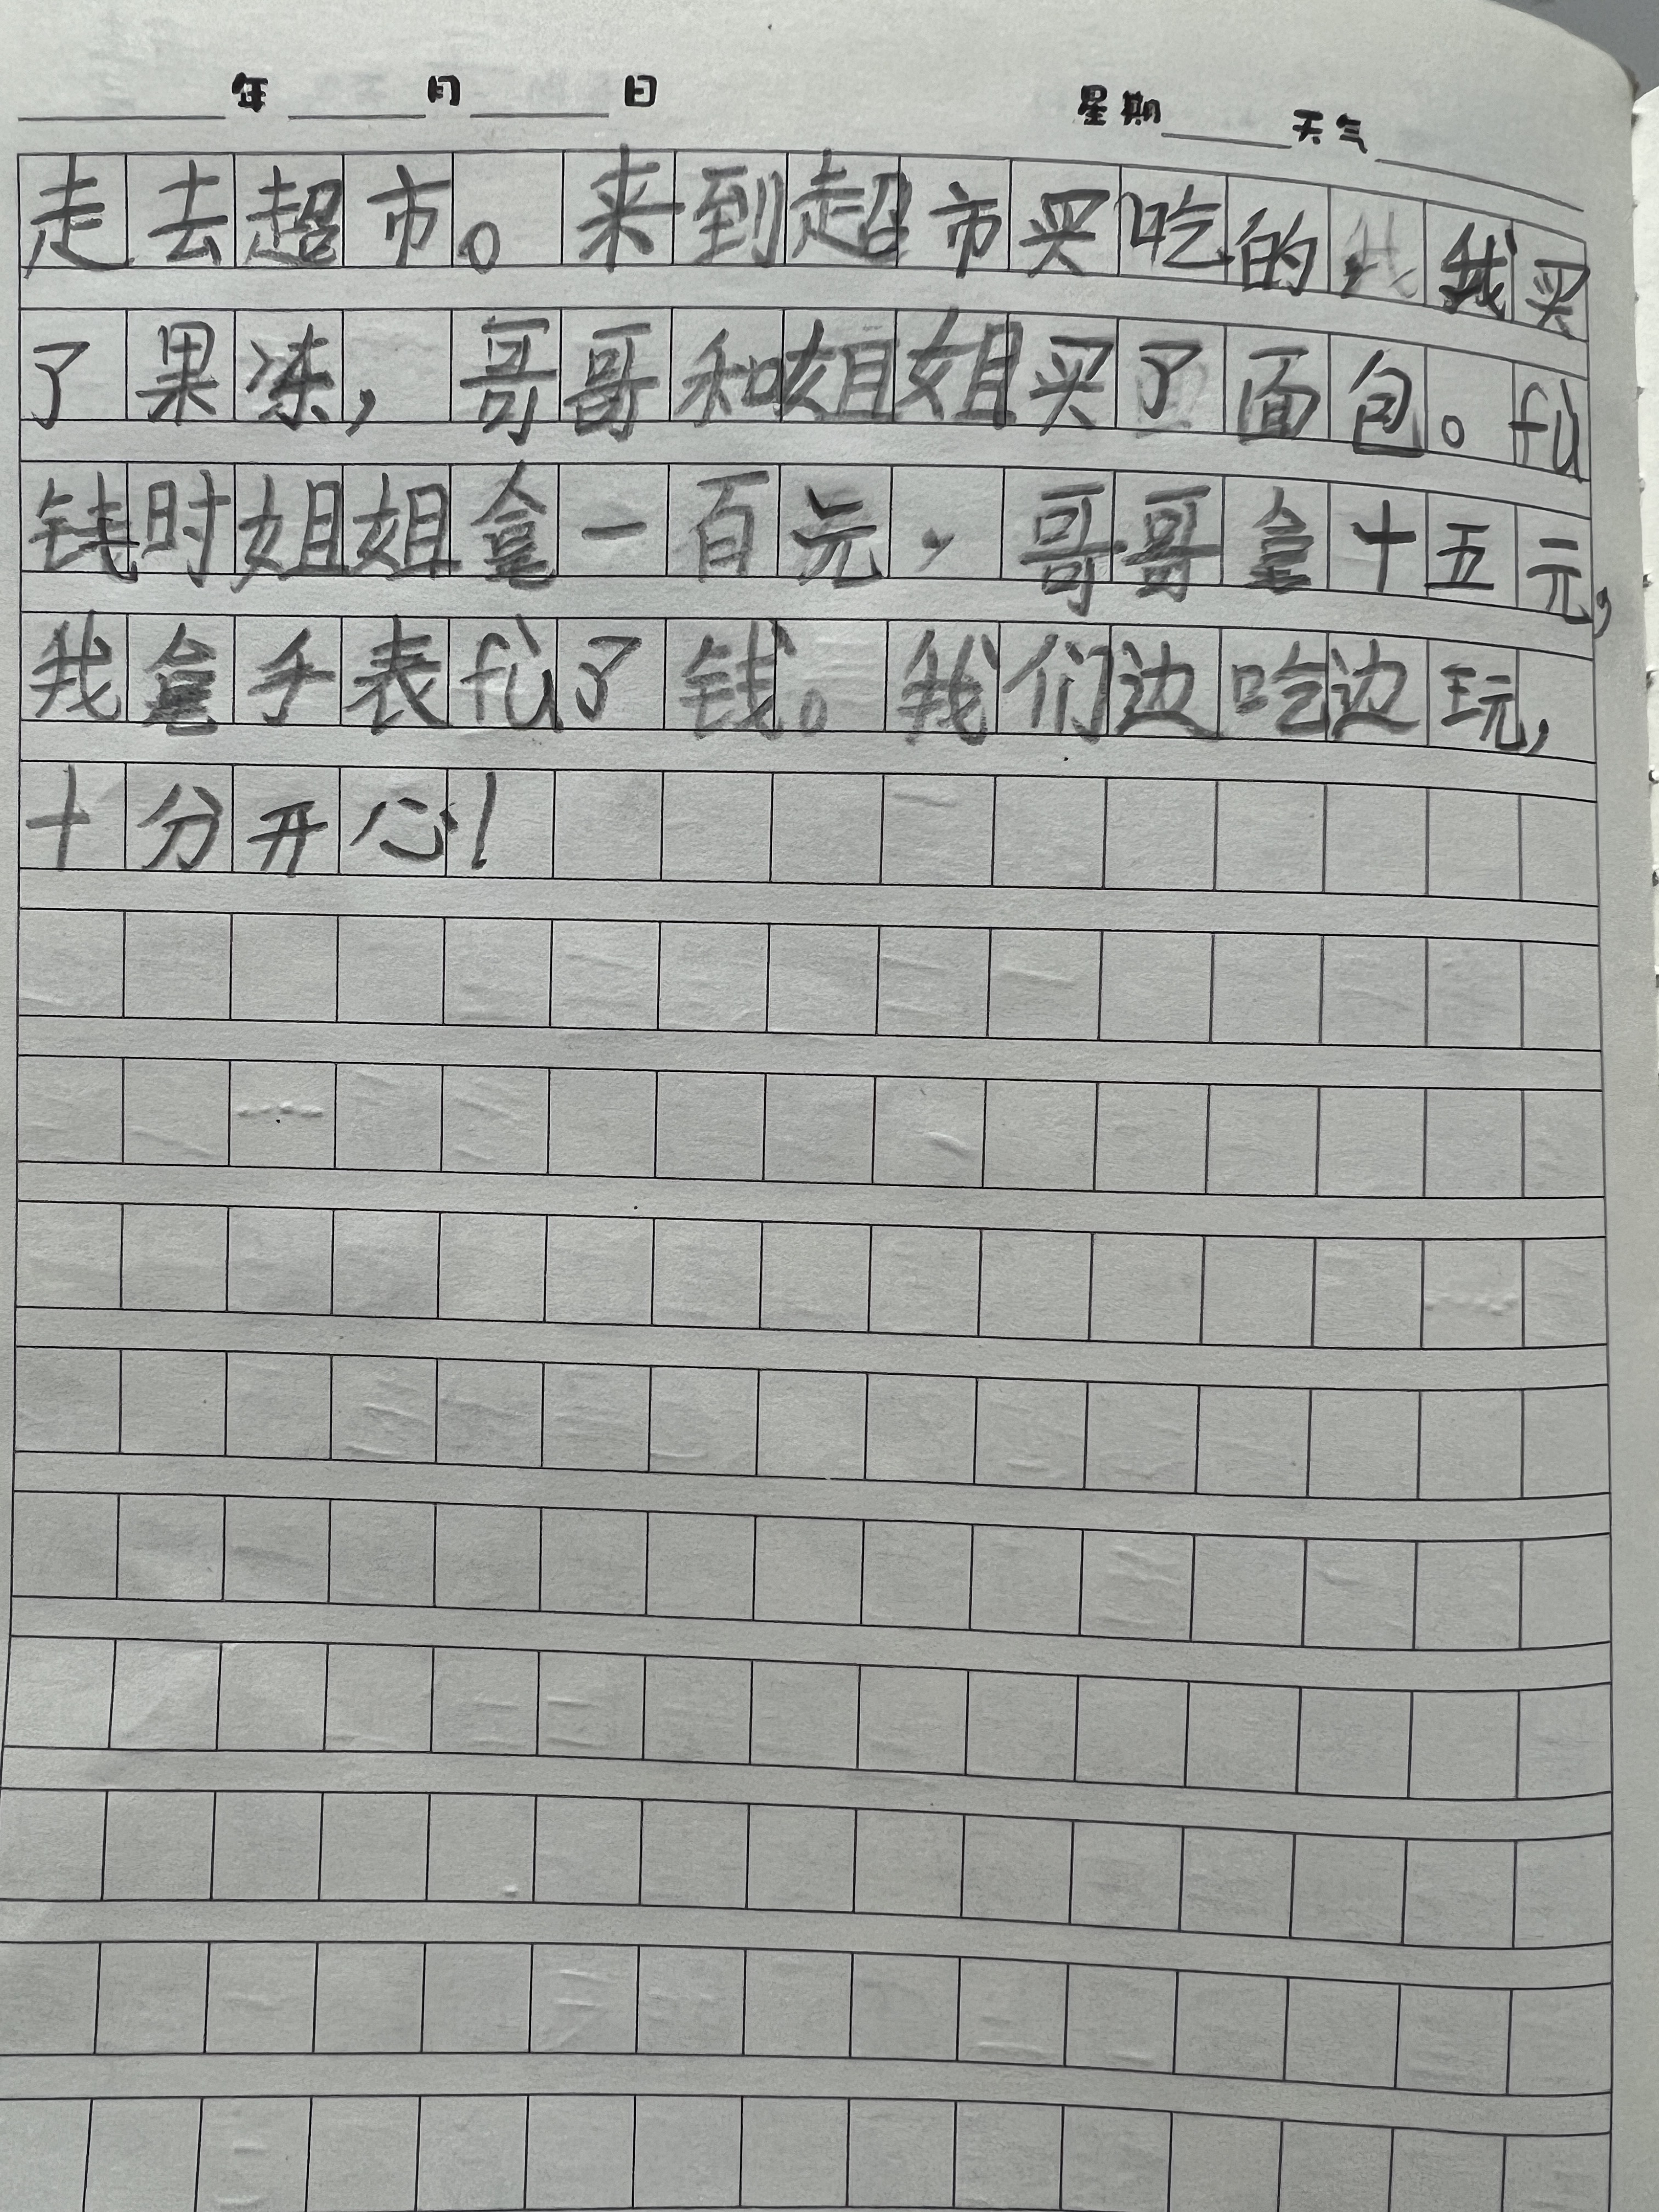 年 月 日 星期 天气
走去超市。来到超市买吃的,我买
了果冻,哥哥和姐姐买了面包。fù
钱时姐姐拿一百元,哥哥拿十五元,
我拿手表fù了钱。我们边吃边玩,
十分开心!